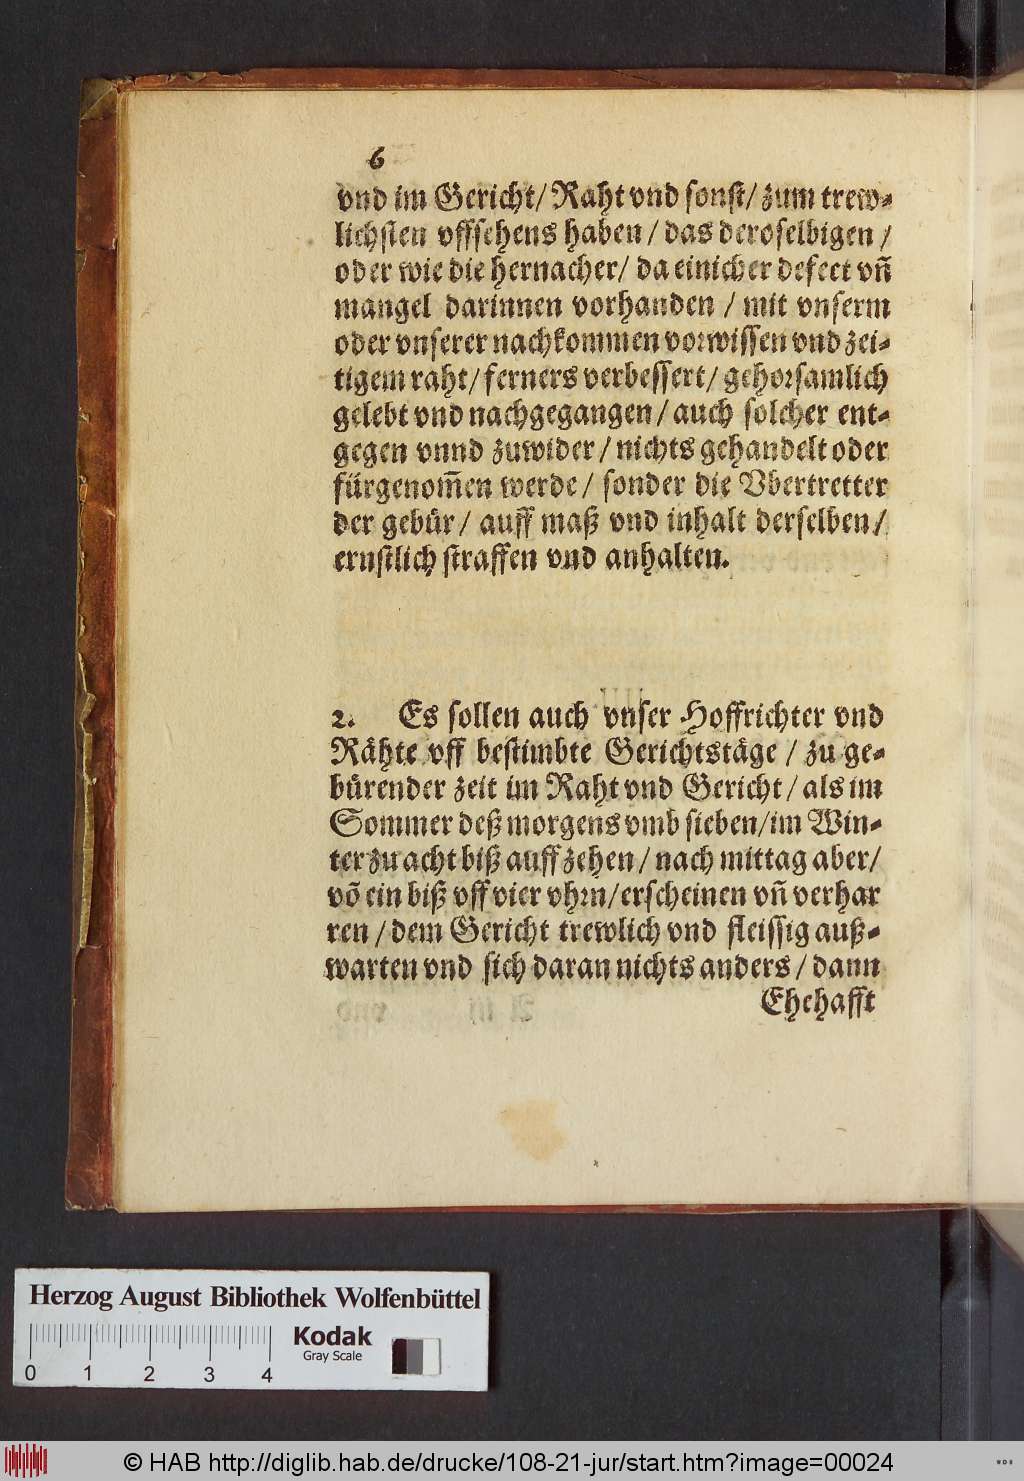 6
vnd im Gericht/ Raht vnd sonst/ zum trew-
lichsten vffsehens haben / das deroselbigen /
oder wie die hernacher/ da einicher defect vñ
mangel darinnen vorhanden / mit vnserm
oder vnserer nachkommen vorwissen vnd zei-
tigem raht/ ferners verbessert/ gehorsamlich
gelebt vnd nachgegangen / auch solcher ent-
gegen vnnd zuwider / nichts gehandelt oder
fürgenom̃en werde / sonder die Vbertretter
der gebür / auff maß vnd inhalt derselben /
ernstlich straffen vnd anhalten.
2. Es sollen auch vnser Hoffrichter vnd
Rähte vff bestimbte Gerichtstäge / zu ge-
bürender zeit im Raht vnd Gericht / als im
Sommer deß morgens vmb sieben/im Win-
ter zu acht biß auff zehen / nach mittag aber/
võ ein biß vff vier vhrn/erscheinen vñ verhar
ren / dem Gericht trewlich vnd fleissig auß-
warten vnd sich daran nichts anders / dann
Ehehafft
Herzog August Bibliothek Wolfenbüttel
Kodak
Gray Scale
0 1 2 3 4
© HAB http://diglib.hab.de/drucke/108-21-jur/start.htm?image=00024